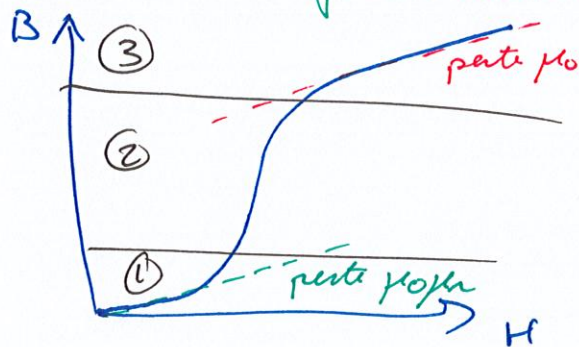 B
③
pente μ₀
②
①
pente μ₀μr
H